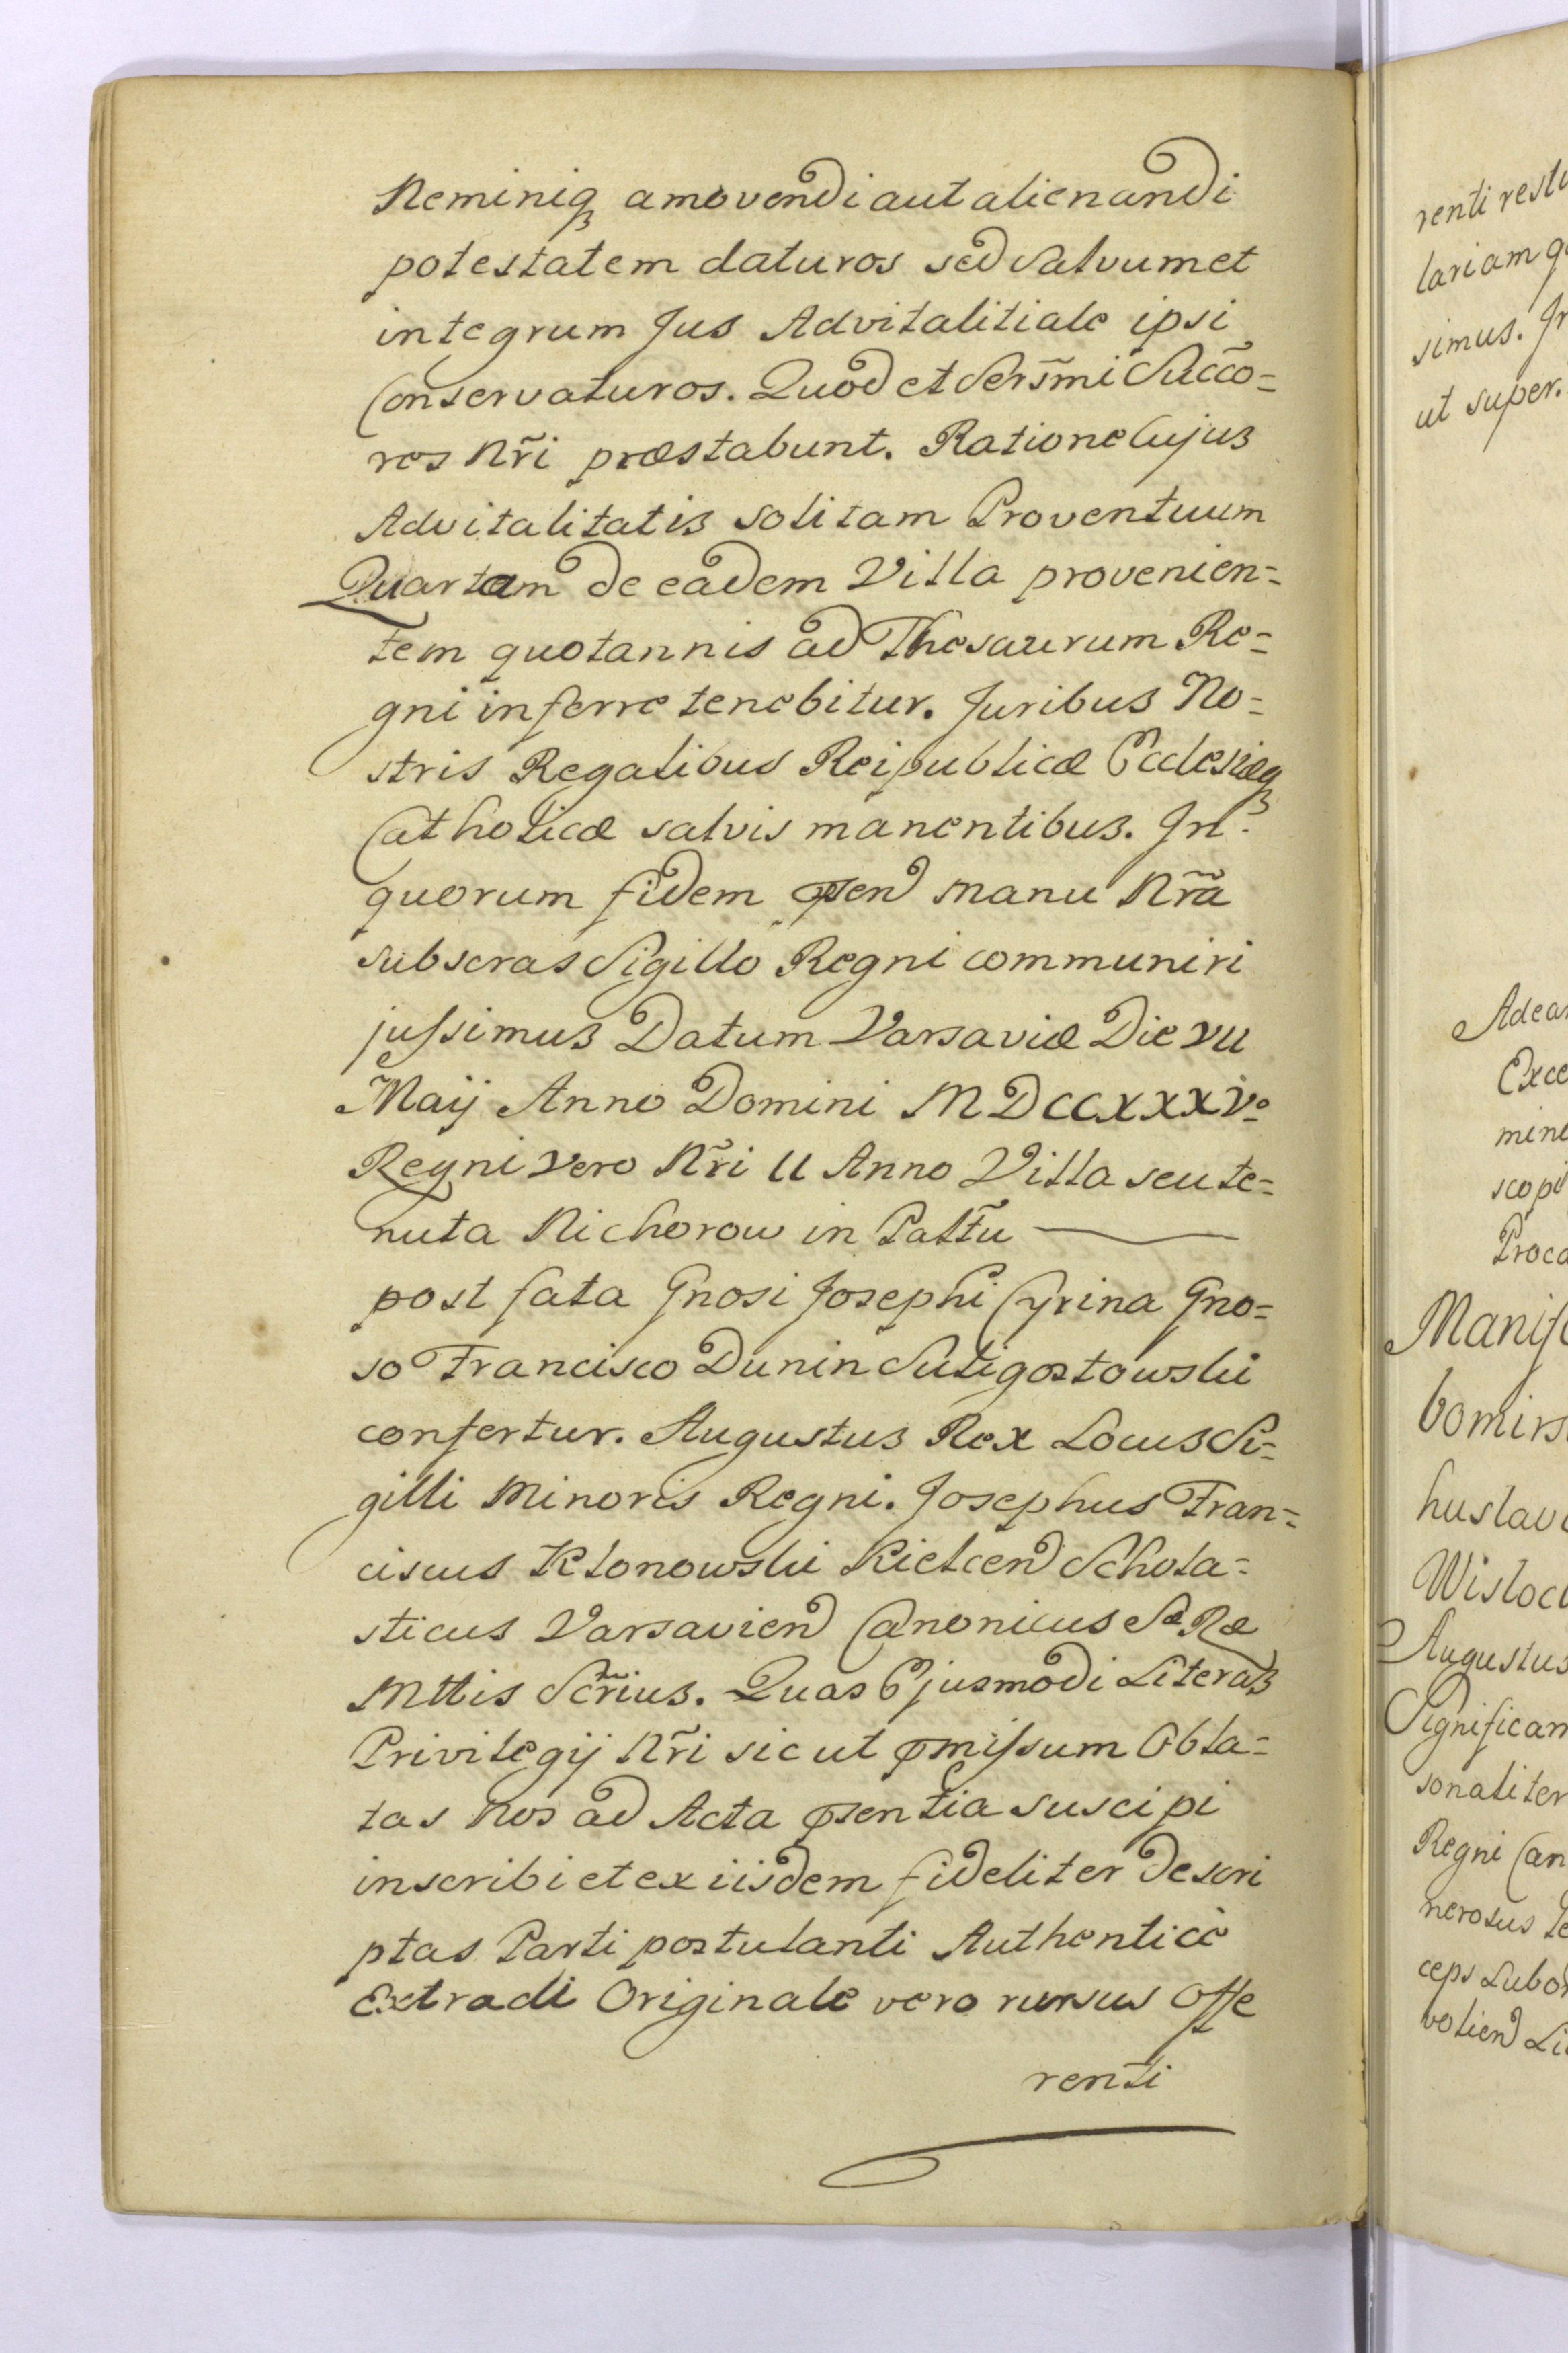 Neminiq₃ amovendi aut alienandi
potestatem daturos sed salvum et
integrum Jus Advitalitiale ipsi
Conservaturos. Quod et Serm̃i Succõ=
res Nr̃i præstabunt. Ratione Cujus
Advitalitatis solitam Proventuum
Quartam de eadem Villa provenien=
tem quotannis ad Thesaurum Re=
gni inferre tenebitur. Juribus No=
stris Regalibus Reipublicæ Ecclesiæq₃
Catholicæ salvis manentibus. In
quorum fidem psen manu Nr̃a
subscras Sigillo Regni communiri
jussimus Datum Varsaviæ Die VII
Maij Anno Domini MDCCXXXVo
Regni vero Nr̃i II Anno Villa seu te=
nuta Nichorow in Palt̃u
post fata Gnosi Josephi Cyrina Gno=
so Francisco Dunin Suligostowski
confertur. Augustus Rex Locus Si=
gilli Minoris Regni. Josephus Fran=
ciscus Klonowski Kielcen Schola=
sticus Varsavien Canonicus Sæ Ræ
Mttis Scr̃ius. Quas Ejusmodi Literas
Privilegij Nr̃i sicut pmissum Obla=
tas Nos ad Acta psentia suscipi
inscribi et ex iisdem fideliter descri
ptas Parti postulanti Authenticè
Extradi Originale vero rursus Offe
renti
renti
simus.
ut super.
Manif
bomirs
huslav
Augustus
Significam
sonaliter
Regni
nerosus
ceps Lubo